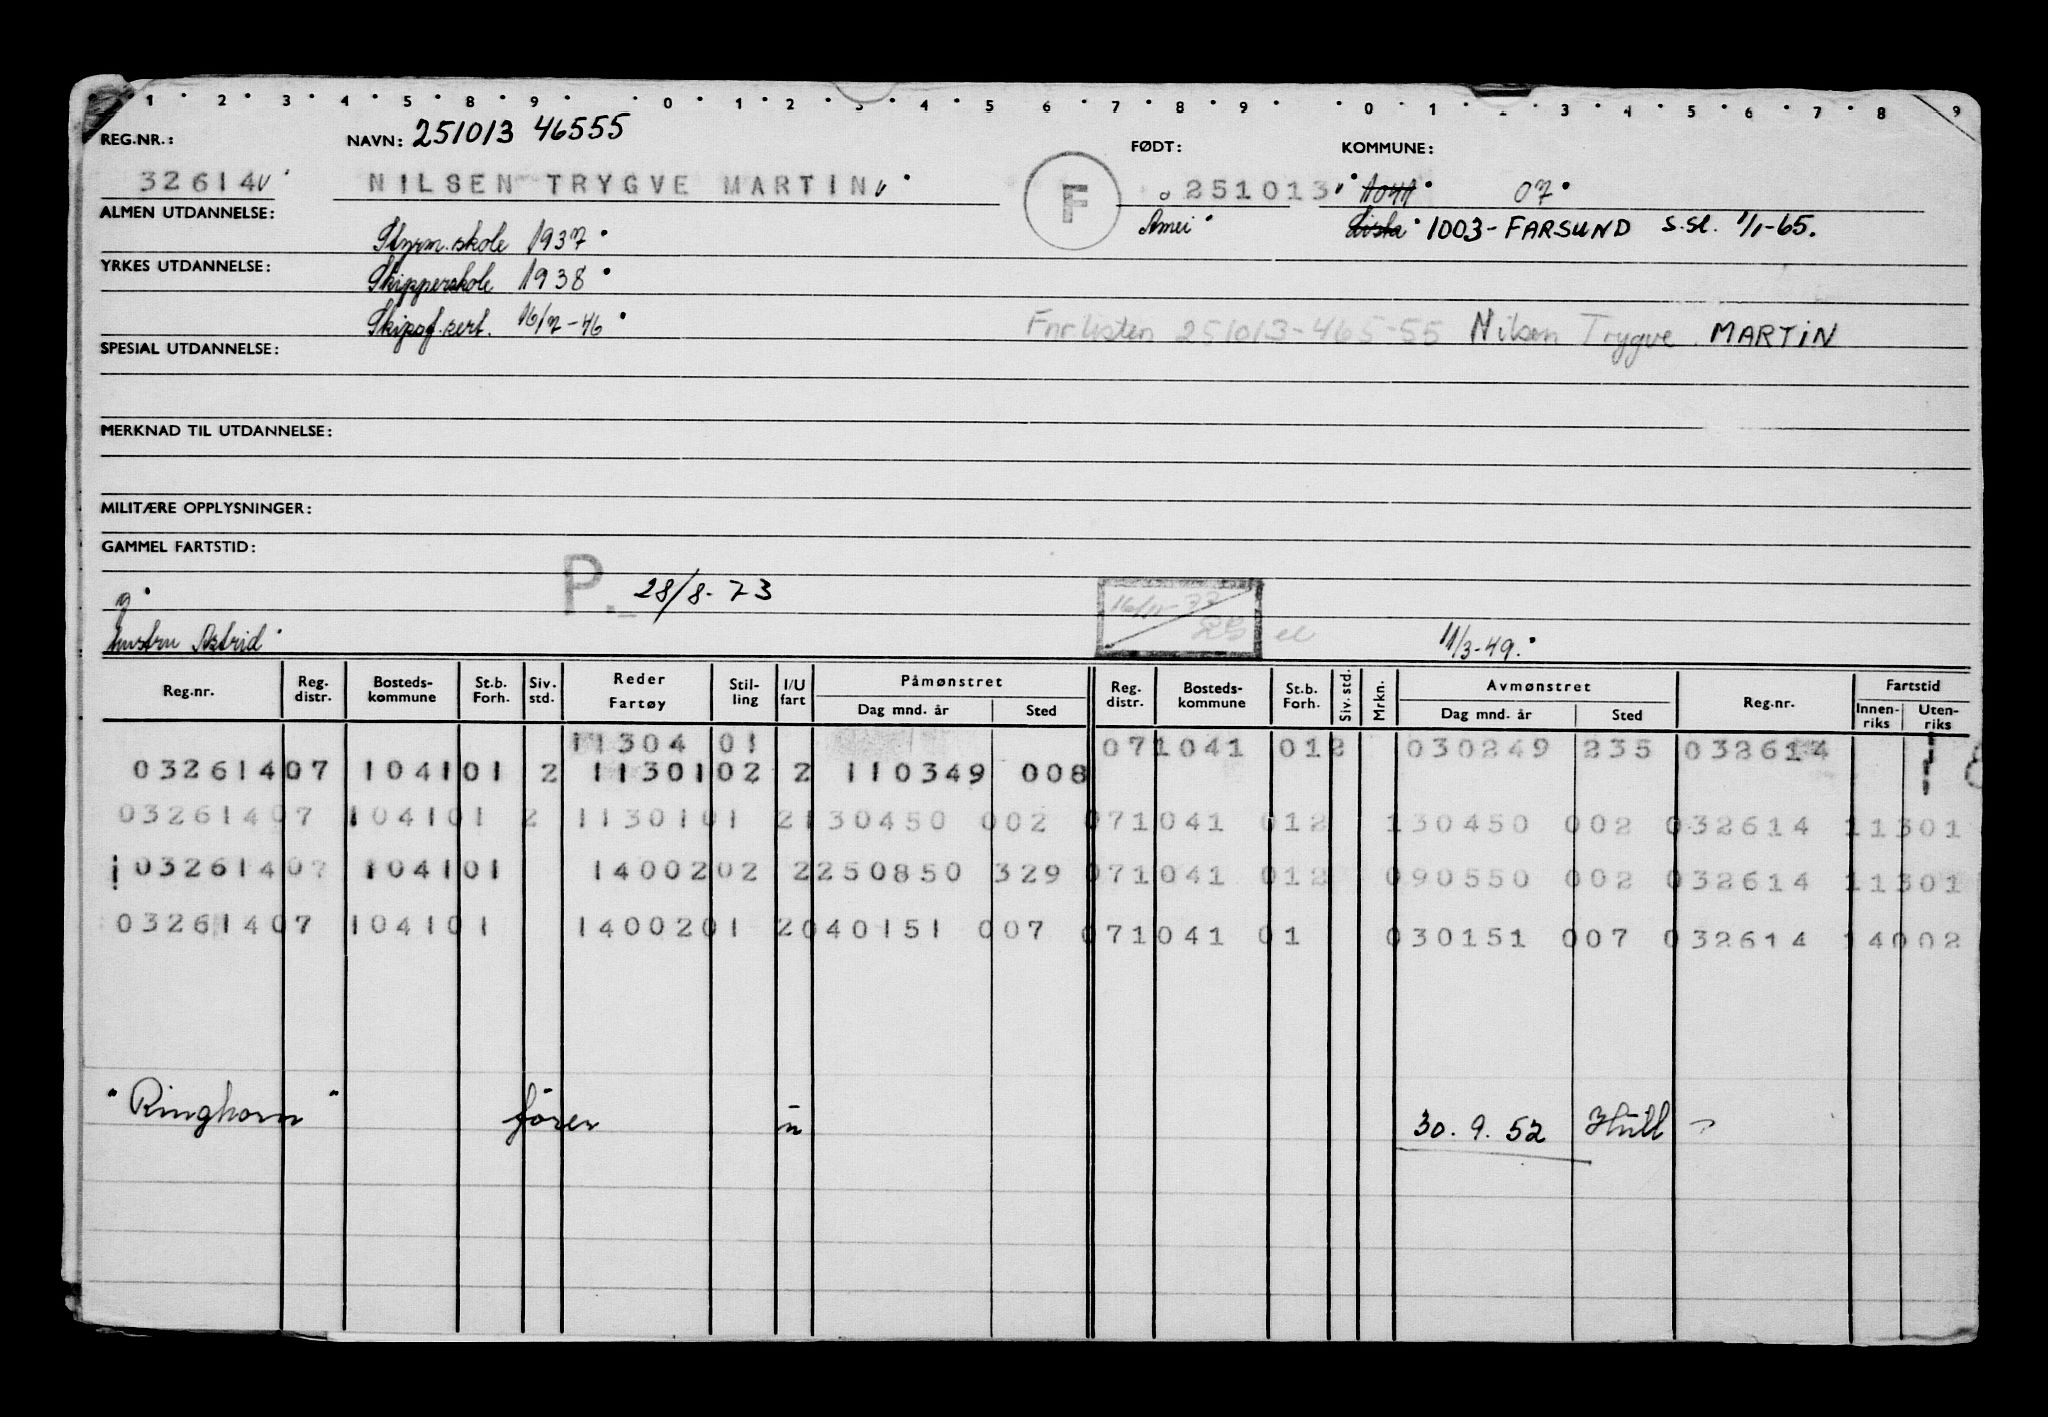 1 2 3 4 5 8 9 0 1 2 3 4 5 6 7 8 9 0 1 2 3 4 5 6 7 8 9
REG.NR.: NAVN: 251013 46555 FØDT: KOMMUNE:
32614 NILSEN TRYGVE MARTIN F 251013 1041 07
ALMEN UTDANNELSE: Styrm.skole 1937 Lista 1003-FARSUND S.Sl. 1/1-65.
YRKES UTDANNELSE: Skipperskole 1938
Skipsf.sert. 16/7-46 Fnrlisten 251013-465-55 Nilsen Trygve MARTIN
SPESIAL UTDANNELSE:
MERKNAD TIL UTDANNELSE:
MILITÆRE OPPLYSNINGER:
GAMMEL FARTSTID:
P. 28/8-73 16/11-73
g
hustru Astrid 11/3-49.
Reg.nr. Reg. distr. Bosteds- kommune St.b. Forh. Siv. std. Reder Fartøy Stil- ling I/U fart Påmønstret Dag mnd. år Sted Reg. distr. Bosteds- kommune St.b. Forh. Siv.std. Mrkn. Avmønstret Dag mnd. år Sted Reg.nr. Fartstid Innen- riks Uten- riks
11304 01 071041 012 030249 235 032614
03261407 104101 2 1130102 2 110349 008
03261407 104101 2 1130101 2130450 002 071041 012 130450 002 032614 11301
03261407 104101 1400202 2250850 329 071041 012 090550 002 032614 11301
03261407 104101 1400201 2040151 007 071041 01 030151 007 032614 14002
"Ringhorn" fører u 30.9.52 Hull